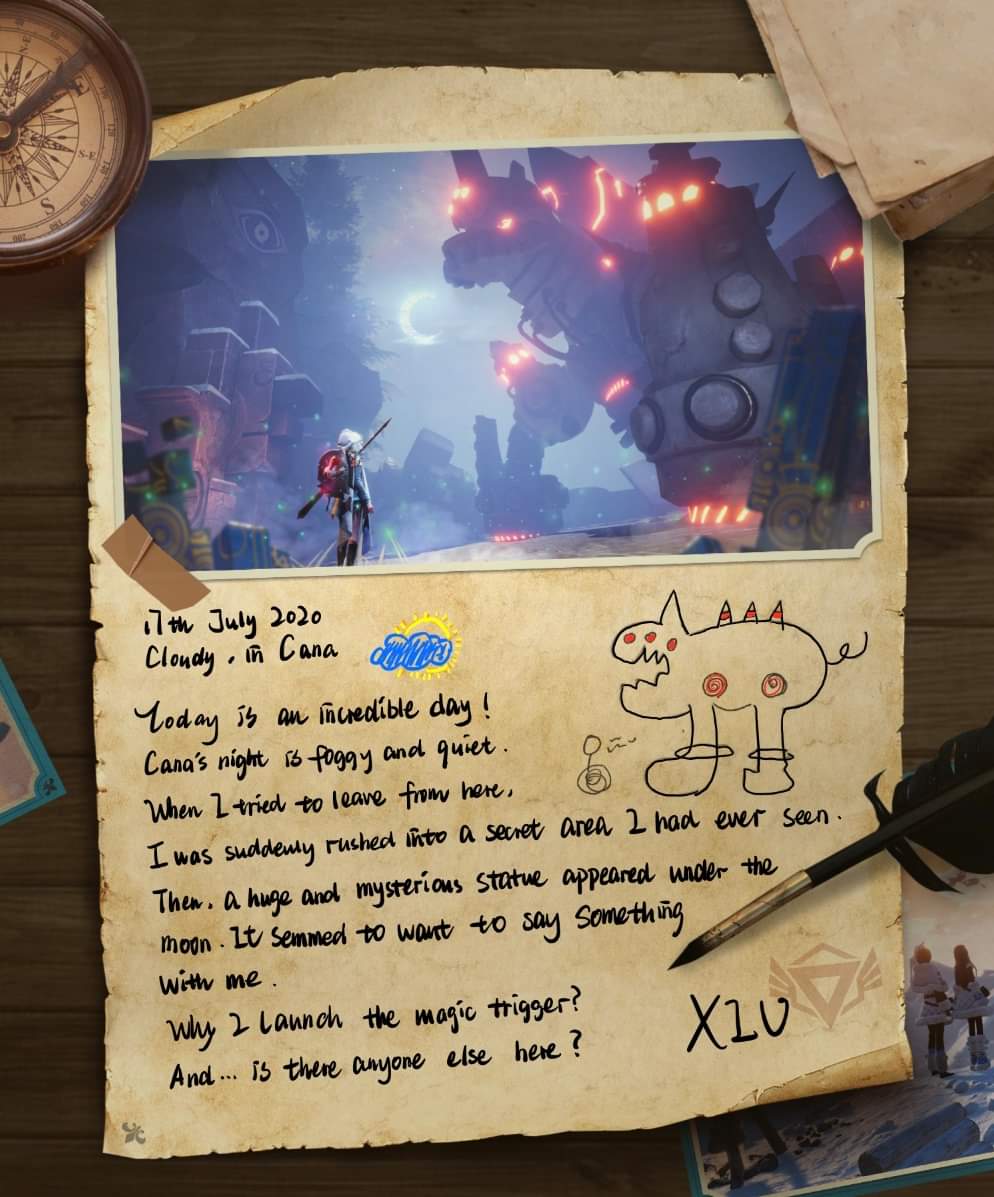 17th July 2020
Cloudy, in Cana
Today is an incredible day!
Cana's night is foggy and quiet.
When I tried to leave from here,
I was suddenly rushed into a secret area I had ever seen.
Then, a huge and mysterious statue appeared under the
moon. It semmed to want to say something
with me.
Why I launch the magic trigger?
And... is there anyone else here?
XIU
S-E
S